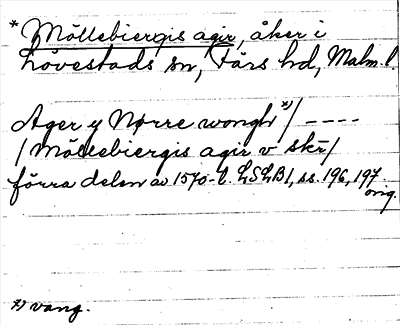 * Möllebiergis agir, åker i
Lövestads sn, Färs hd, Malm. l.
Ager y Nørre wongh *)/ ----
/Möllebiergis agir v skr/
förra delen av 1570-t. LSLB 1, ss. 196, 197
orig.
*) vang.